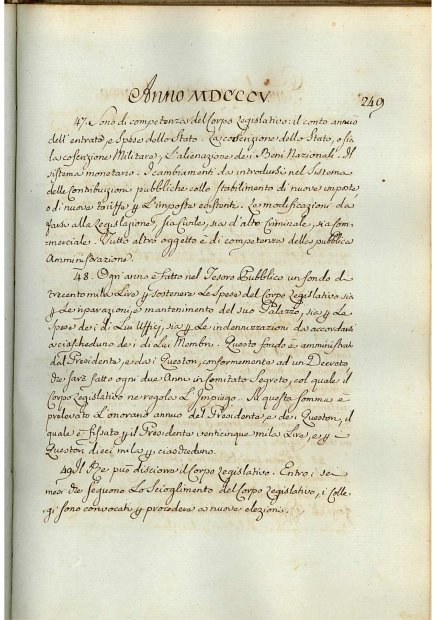 Anno MDCCCV
249
47. Sono di competenza del Corpo Legislativo: il conto annuo
dell'entrata, e Spese dello Stato. La coscrizione dello Stato, o sia
la coscrizione Militare, L'alienazione dei Beni Nazionali. Il
sistema monetario. I cambiamenti da introdursi nel Sistema
delle Contribuzioni pubbliche collo stabilimento di nuove imposte
o di nuove tariffe p L'imposte esistenti. Le modificazioni da
farsi alla Legislazione sia Civile, sia d'alto Criminale, sia Com-
merciale. Tutto altro oggetto è di competenza della pubblica
Amministrazione.
48. Ogni anno è fatto nel Tesoro Pubblico un fondo di
trecento mila Lire p sostenere Le Spese del Corpo Legislativo sia
p Le riparazioni, e mantenimento del suo Palazzo, sia p Le
Spese dei di Lui Uffici, sia p Le indennizzazioni da accordarsi
a ciascheduno dei di Lui Membri. Questo fondo è amministrato
dal Presidente, e dai Questori, conformemente ad un Decreto
che sarà fatto ogni due Anni in Comitato Segreto, col quale il
Corpo Legislativo ne regola L'Impiego. Su questa Somma è
prelevato L'onorario annuo del Presidente, e dei Questori, il
quale è fissato p il Presidente venticinque mila Lire, e p i
Questori dieci mila p ciascheduno.
49. Il Re può disciorre il Corpo Legislativo. Entro i sei
mesi che seguono Lo Scioglimento del Corpo Legislativo, i Colle-
gi sono convocati p procedere a nuove elezioni.